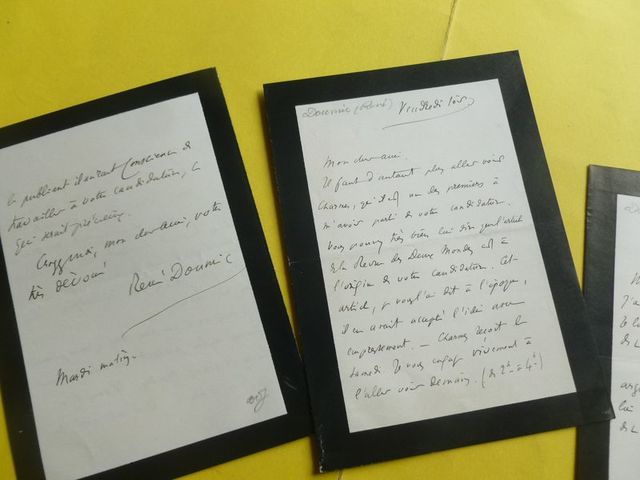 le publient il aurait conscience de
travailler à votre candidature, ce
qui serait précieux.
Croyez moi, mon cher ami, votre
très dévoué
René Doumic
Mardi matin.
Doumic (René) Vendredi soir
Mon cher ami.
Il faut d'autant plus aller voir
Charmes, qu'il est un des premiers à
m'avoir parlé de votre candidature.
Vous pouvez très bien lui dire que l'article
de la Revue des Deux Mondes est à
l'origine de votre candidature. Cet
article, je vous l'ai dit à l'époque,
il en avait accepté l'idée avec
empressement. — Charmes reçoit le
samedi. Je vous engage vivement à
l'aller voir demain. (de 2h à 4h)
J'ai